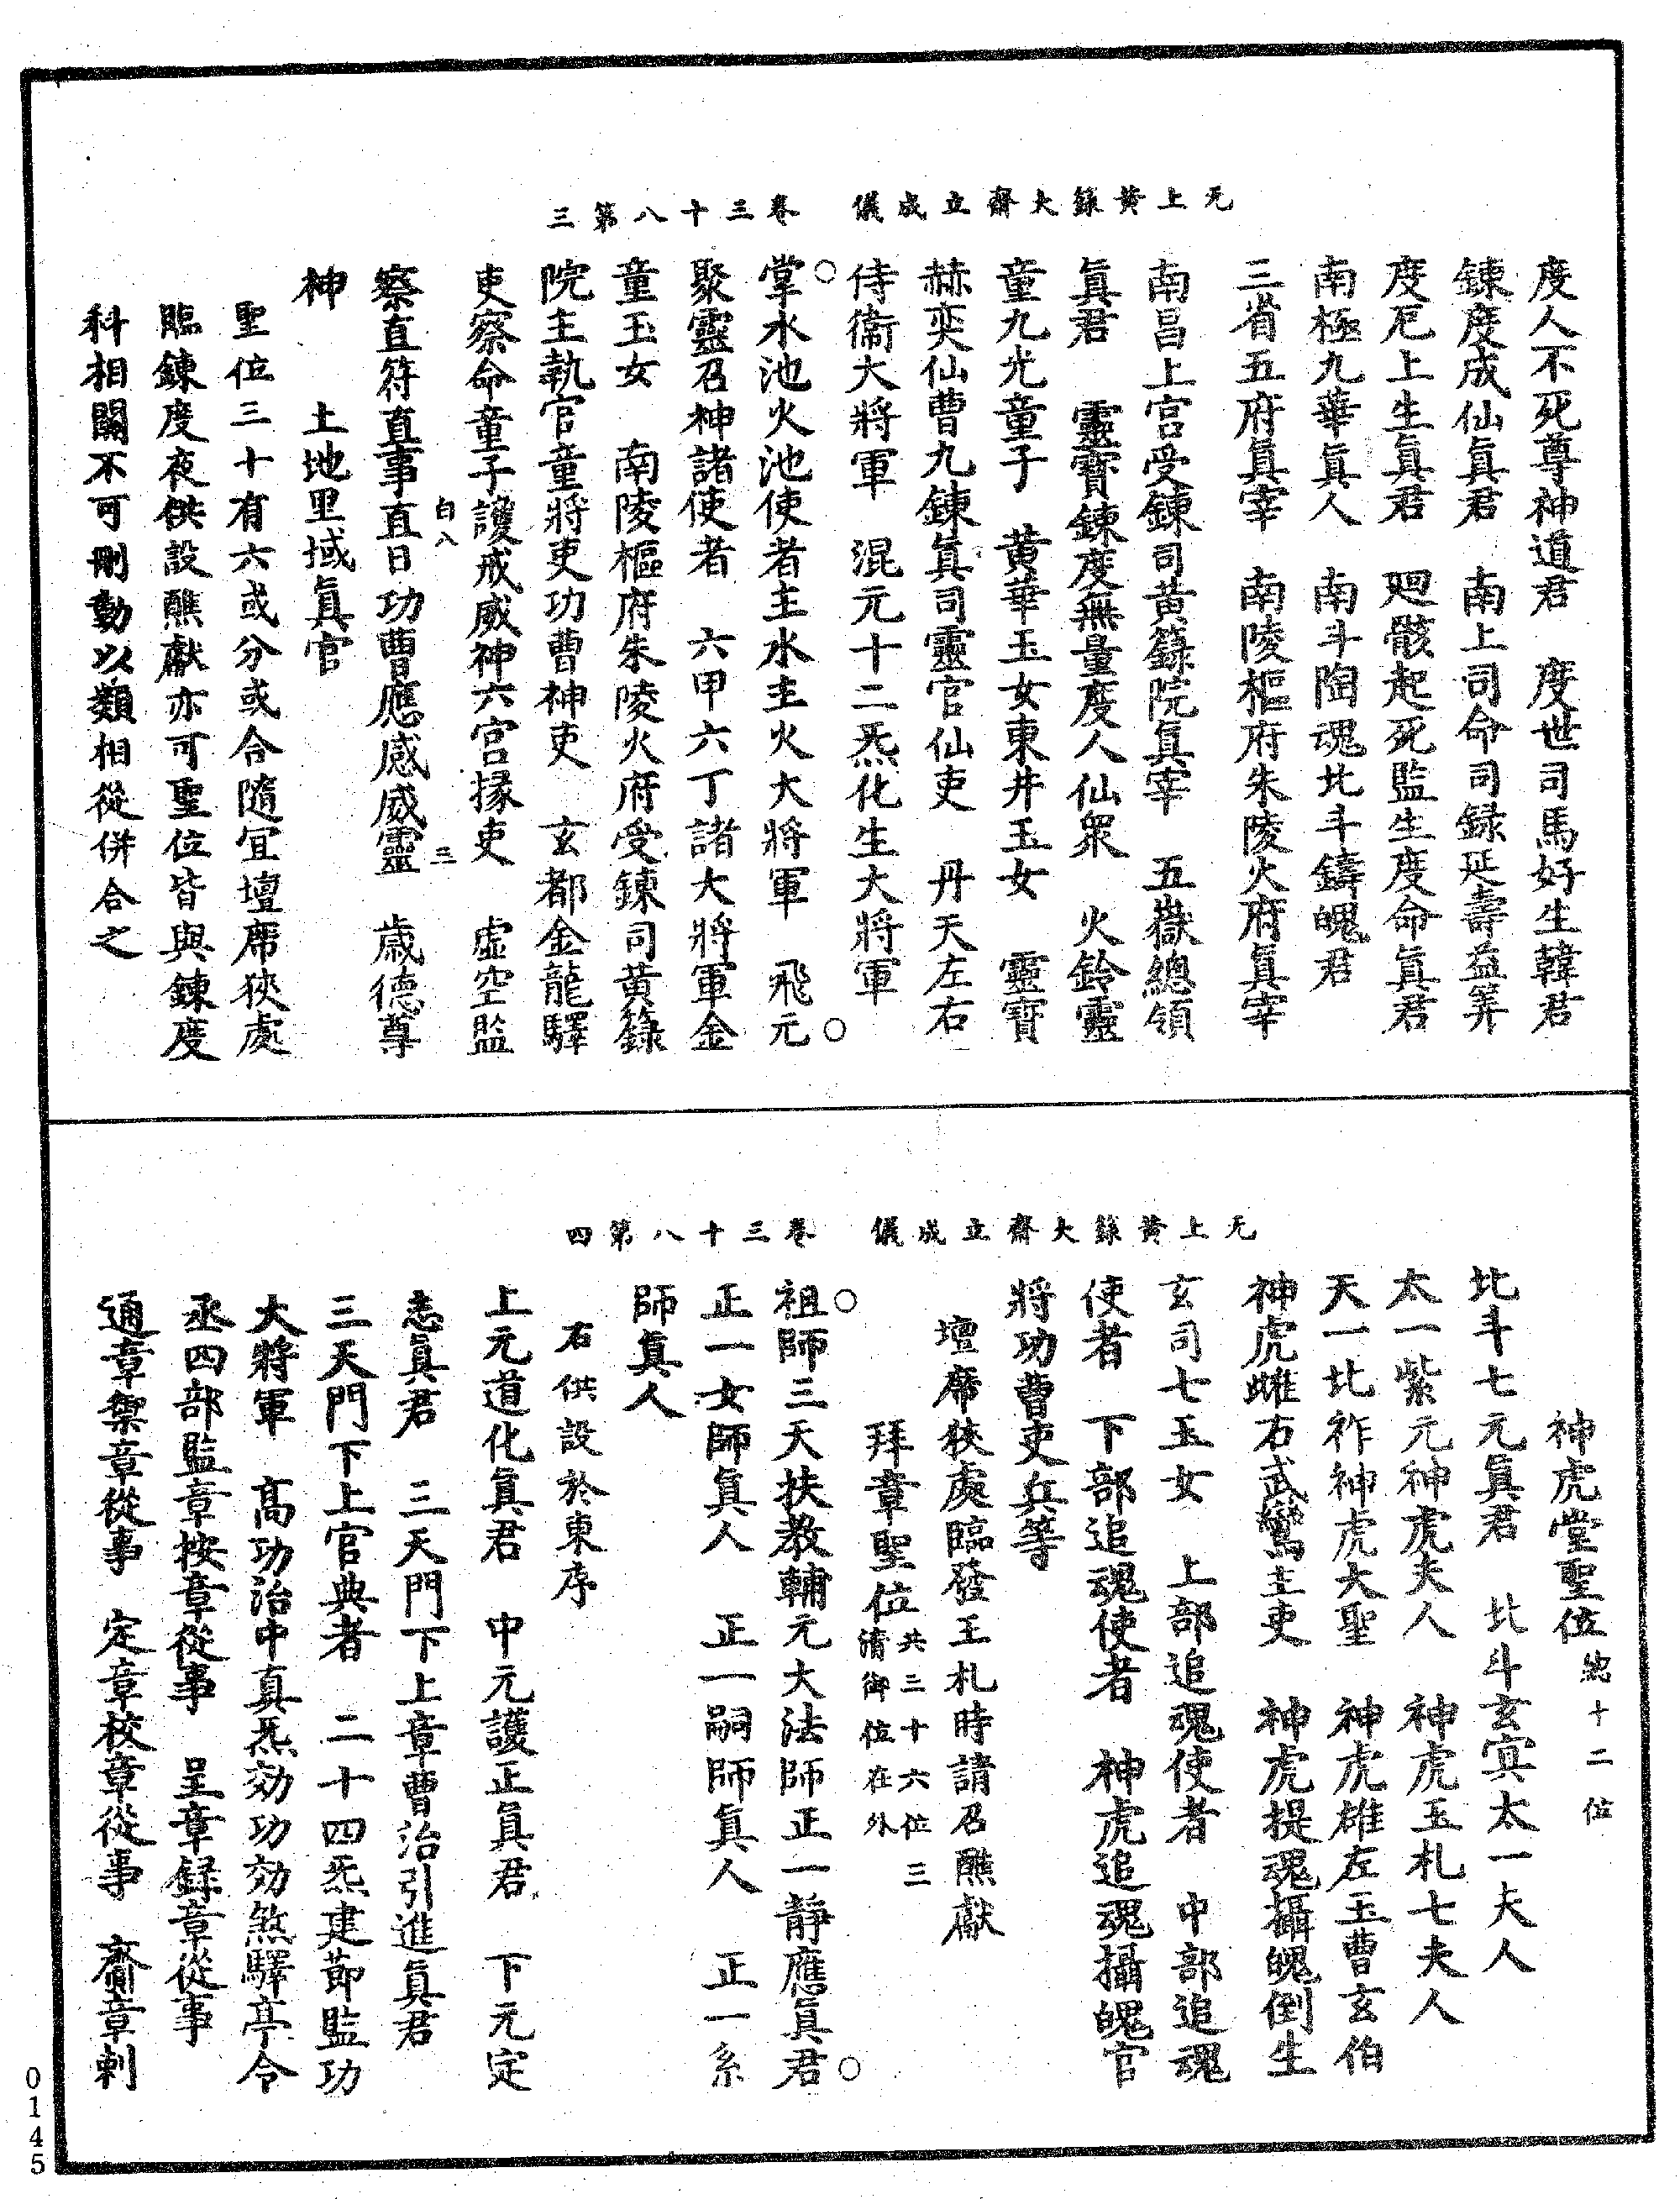 无上黃籙大齋立成儀　卷三十八第三
度人不死尊神道君　度世司馬好生韓君
鍊度成仙眞君　南上司命司録延壽益筭
度厄上生眞君　廻骸起死監生度命眞君
南極九華眞人　南斗陶魂北斗鑄魄君
三省五府眞宰　南陵樞府朱陵火府眞宰
南昌上宮受鍊司黃籙院眞宰　五嶽總領
眞君　靈寶鍊度無量度人仙衆　火鈴靈
童九光童子　黃華玉女東井玉女　靈寶
赫奕仙曹九鍊眞司靈官仙吏　丹天左右
侍衞大將軍　混元十二炁化生大將軍
○掌水池火池使者主水主火大將軍　飛元○
聚靈召神諸使者　六甲六丁諸大將軍金
童玉女　南陵樞府朱陵火府受鍊司黃籙
院主執官童將吏功曹神吏　玄都金龍驛
吏察命童子護戒威神六宮掾吏　虛空監
白八　三
察直符直事直日功曹應感威靈　歲德尊
神　土地里域眞官
聖位三十有六或分或合隨宜壇席狹處
臨鍊度夜供設醮獻亦可聖位皆與鍊度
科相關不可刪動以類相從併合之
无上黃籙大齋立成儀　卷三十八第四
神虎堂聖位總十二位
北斗七元眞君　北斗玄㝠太一夫人
太一紫元神虎夫人　神虎玉札七夫人
天一北祚神虎大聖　神虎雄左玉曹玄伯
神虎雌右武鸞主吏　神虎提魂攝魄倒生
玄司七玉女　上部追魂使者　中部追魂
使者　下部追魂使者　神虎追魂攝魄官
將功曹吏兵等
壇席狹處臨發王札時請召醮獻
拜章聖位共三十六位三清御位在外
○祖師三天扶教輔元大法師正一靜應眞君○
正一女師眞人　正一嗣師眞人　正一系
師眞人
右供設於東序
上元道化眞君　中元護正眞君　下元定
志眞君　三天門下上章曹治引進眞君
三天門下上官典者　二十四炁建節監功
大將軍　高功治中真炁効功効煞驛亭令
丞四部監章按章從事　呈章録章從事
通章禦章從事　定章校章從事　齎章刺
0145